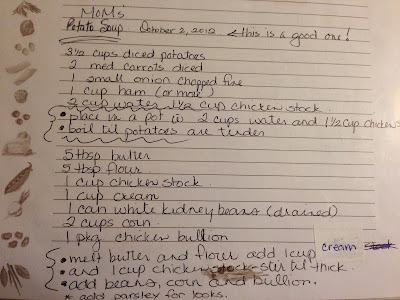 MOM's
Potato Soup October 2, 2012 < this is a good one!
3 1/2 cups diced potatoes
2 med carrots diced
1 small onion chopped fine
1 cup ham (or more)
2 cup water 1 1/2 cup chicken stock
• place in a pot w 2 cups water and 1 1/2 cup chicken s
• boil til potatoes are tinder
5 tbsp butter
5 tbsp flour
1 cup chicken stock
1 cup cream
1 can white kidney beans (drained)
2 cups corn
1 pkg chicken bullion
• melt butter and flour add 1 cup cream
• and 1 cup chicken stock stir til thick.
• add beans, corn and bullion.
* add parsley for looks.